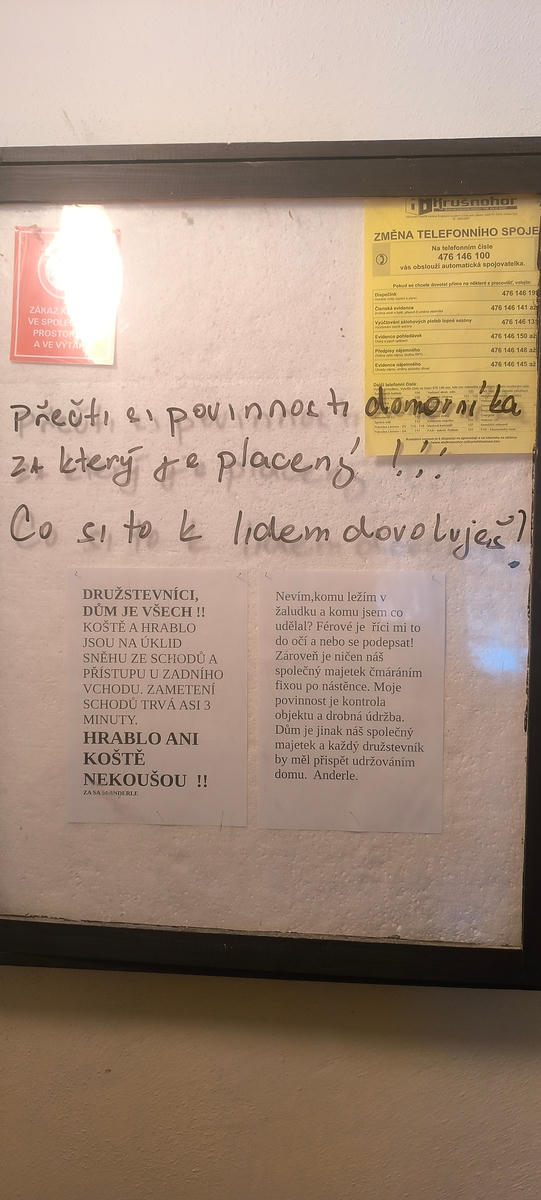 Krušnohor
ZMĚNA TELEFONNÍHO SPOJE
Na telefonním čísle
476 146 100
vás obslouží automatická spojovatelka.
Pokud se chcete dovolat přímo na některé z pracovišť, volejte:
Dispečink
Členská evidence 476 146 141 až
Vyúčtování zálohových plateb topné sezóny
Evidence pohledávek 476 146 150 až
Předpisy nájemného 476 146 146 až
Evidence nájemného 476 146 145 až
Další telefonní čísla:
ZÁKAZ
VE
PROSTO
A VE VÝTA
Přečti si povinnosti domovníka
za který je placený !!!
Co si to k lidem dovoluješ?
DRUŽSTEVNÍCI,
DŮM JE VŠECH !!
KOŠTĚ A HRABLO
JSOU NA ÚKLID
SNĚHU ZE SCHODŮ A
PŘÍSTUPU U ZADNÍHO
VCHODU. ZAMETENÍ
SCHODŮ TRVÁ ASI 3
MINUTY.
HRABLO ANI
KOŠTĚ
NEKOUŠOU !!
ZA SA ANDERLE
Nevím,komu ležím v
žaludku a komu jsem co
udělal? Férové je říci mi to
do očí a nebo se podepsat!
Zároveň je ničen náš
společný majetek čmáráním
fixou po nástěnce. Moje
povinnost je kontrola
objektu a drobná údržba.
Dům je jinak náš společný
majetek a každý družstevník
by měl přispět udržováním
domu. Anderle.